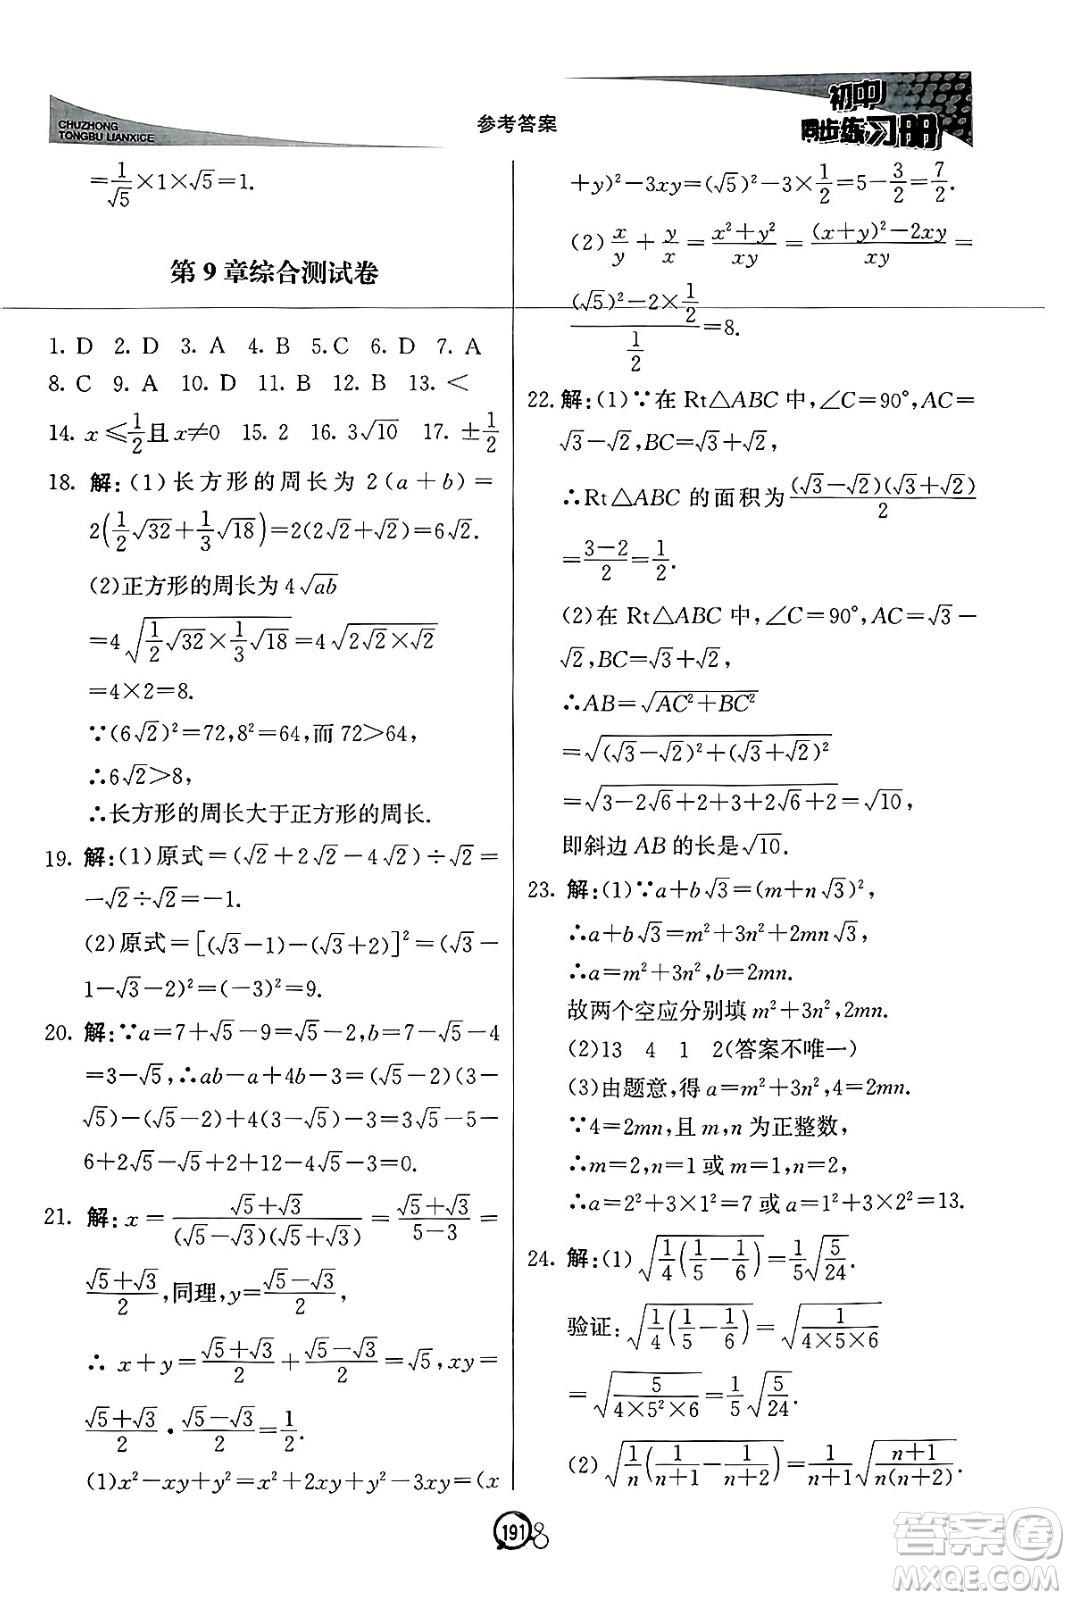 CHUZHONG
TONGBU LIANXICE
参考答案
初中
同步练习册
=1/√5×1×√5=1.
第 9 章综合测试卷
1. D 2. D 3. A 4. B 5. C 6. D 7. A
8. C 9. A 10. D 11. B 12. B 13. <
14. x≤1/2且 x≠0 15. 2 16. 3√10 17. ±1/2
18. 解:(1)长方形的周长为 2(a+b)=
2(1/2√32+1/3√18)=2(2√2+√2)=6√2.
(2)正方形的周长为 4√(ab)
=4√(1/2√32×1/3√18)=4√(2√2×√2)
=4×2=8.
∵(6√2)²=72,8²=64,而 72>64,
∴6√2>8,
∴长方形的周长大于正方形的周长.
19. 解:(1)原式=(√2+2√2-4√2)÷√2=
-√2÷√2=-1.
(2)原式=[(√3-1)-(√3+2)]²=(√3-
1-√3-2)²=(-3)²=9.
20. 解:∵a=7+√5-9=√5-2,b=7-√5-4
=3-√5,∴ab-a+4b-3=(√5-2)(3-
√5)-(√5-2)+4(3-√5)-3=3√5-5-
6+2√5-√5+2+12-4√5-3=0.
21. 解:x=(√5+√3)/((√5-√3)(√5+√3))=(√5+√3)/(5-3)=
(√5+√3)/2,同理,y=(√5-√3)/2,
∴ x+y=(√5+√3)/2+(√5-√3)/2=√5,xy=
(√5+√3)/2·(√5-√3)/2=1/2.
(1)x²-xy+y²=x²+2xy+y²-3xy=(x
+y)²-3xy=(√5)²-3×1/2=5-3/2=7/2.
(2)x/y+y/x=(x²+y²)/xy=((x+y)²-2xy)/xy=
((√5)²-2×1/2)/(1/2)=8.
22. 解:(1)∵在 Rt△ABC 中,∠C=90°,AC=
√3-√2,BC=√3+√2,
∴Rt△ABC 的面积为((√3-√2)(√3+√2))/2
=(3-2)/2=1/2.
(2)在 Rt△ABC 中,∠C=90°,AC=√3-
√2,BC=√3+√2,
∴AB=√(AC²+BC²)
=√((√3-√2)²+(√3+√2)²)
=√(3-2√6+2+3+2√6+2)=√10,
即斜边 AB 的长是√10.
23. 解:(1)∵a+b√3=(m+n√3)²,
∴a+b√3=m²+3n²+2mn√3,
∴a=m²+3n²,b=2mn.
故两个空应分别填 m²+3n²,2mn.
(2)13 4 1 2(答案不唯一)
(3)由题意,得 a=m²+3n²,4=2mn.
∵4=2mn,且 m,n 为正整数,
∴m=2,n=1 或 m=1,n=2,
∴a=2²+3×1²=7 或 a=1²+3×2²=13.
24. 解:(1)√(1/4(1/5-1/6))=1/5√(5/24).
验证:√(1/4(1/5-1/6))=√(1/(4×5×6))
=√(5/(4×5²×6))=1/5√(5/24).
(2)√(1/n(1/(n+1)-1/(n+2)))=1/(n+1)√((n+1)/(n(n+2))).
191
8
答案圈
MXQE.COM